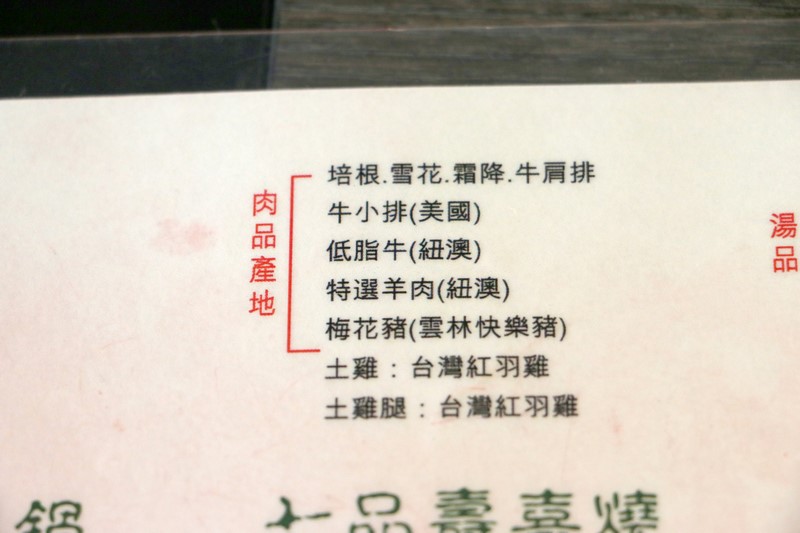 肉品產地
培根.雪花.霜降.牛肩排
牛小排(美國)
低脂牛(紐澳)
特選羊肉(紐澳)
梅花豬(雲林快樂豬)
土雞：台灣紅羽雞
土雞腿：台灣紅羽雞
湯品
鍋
品壽喜燒